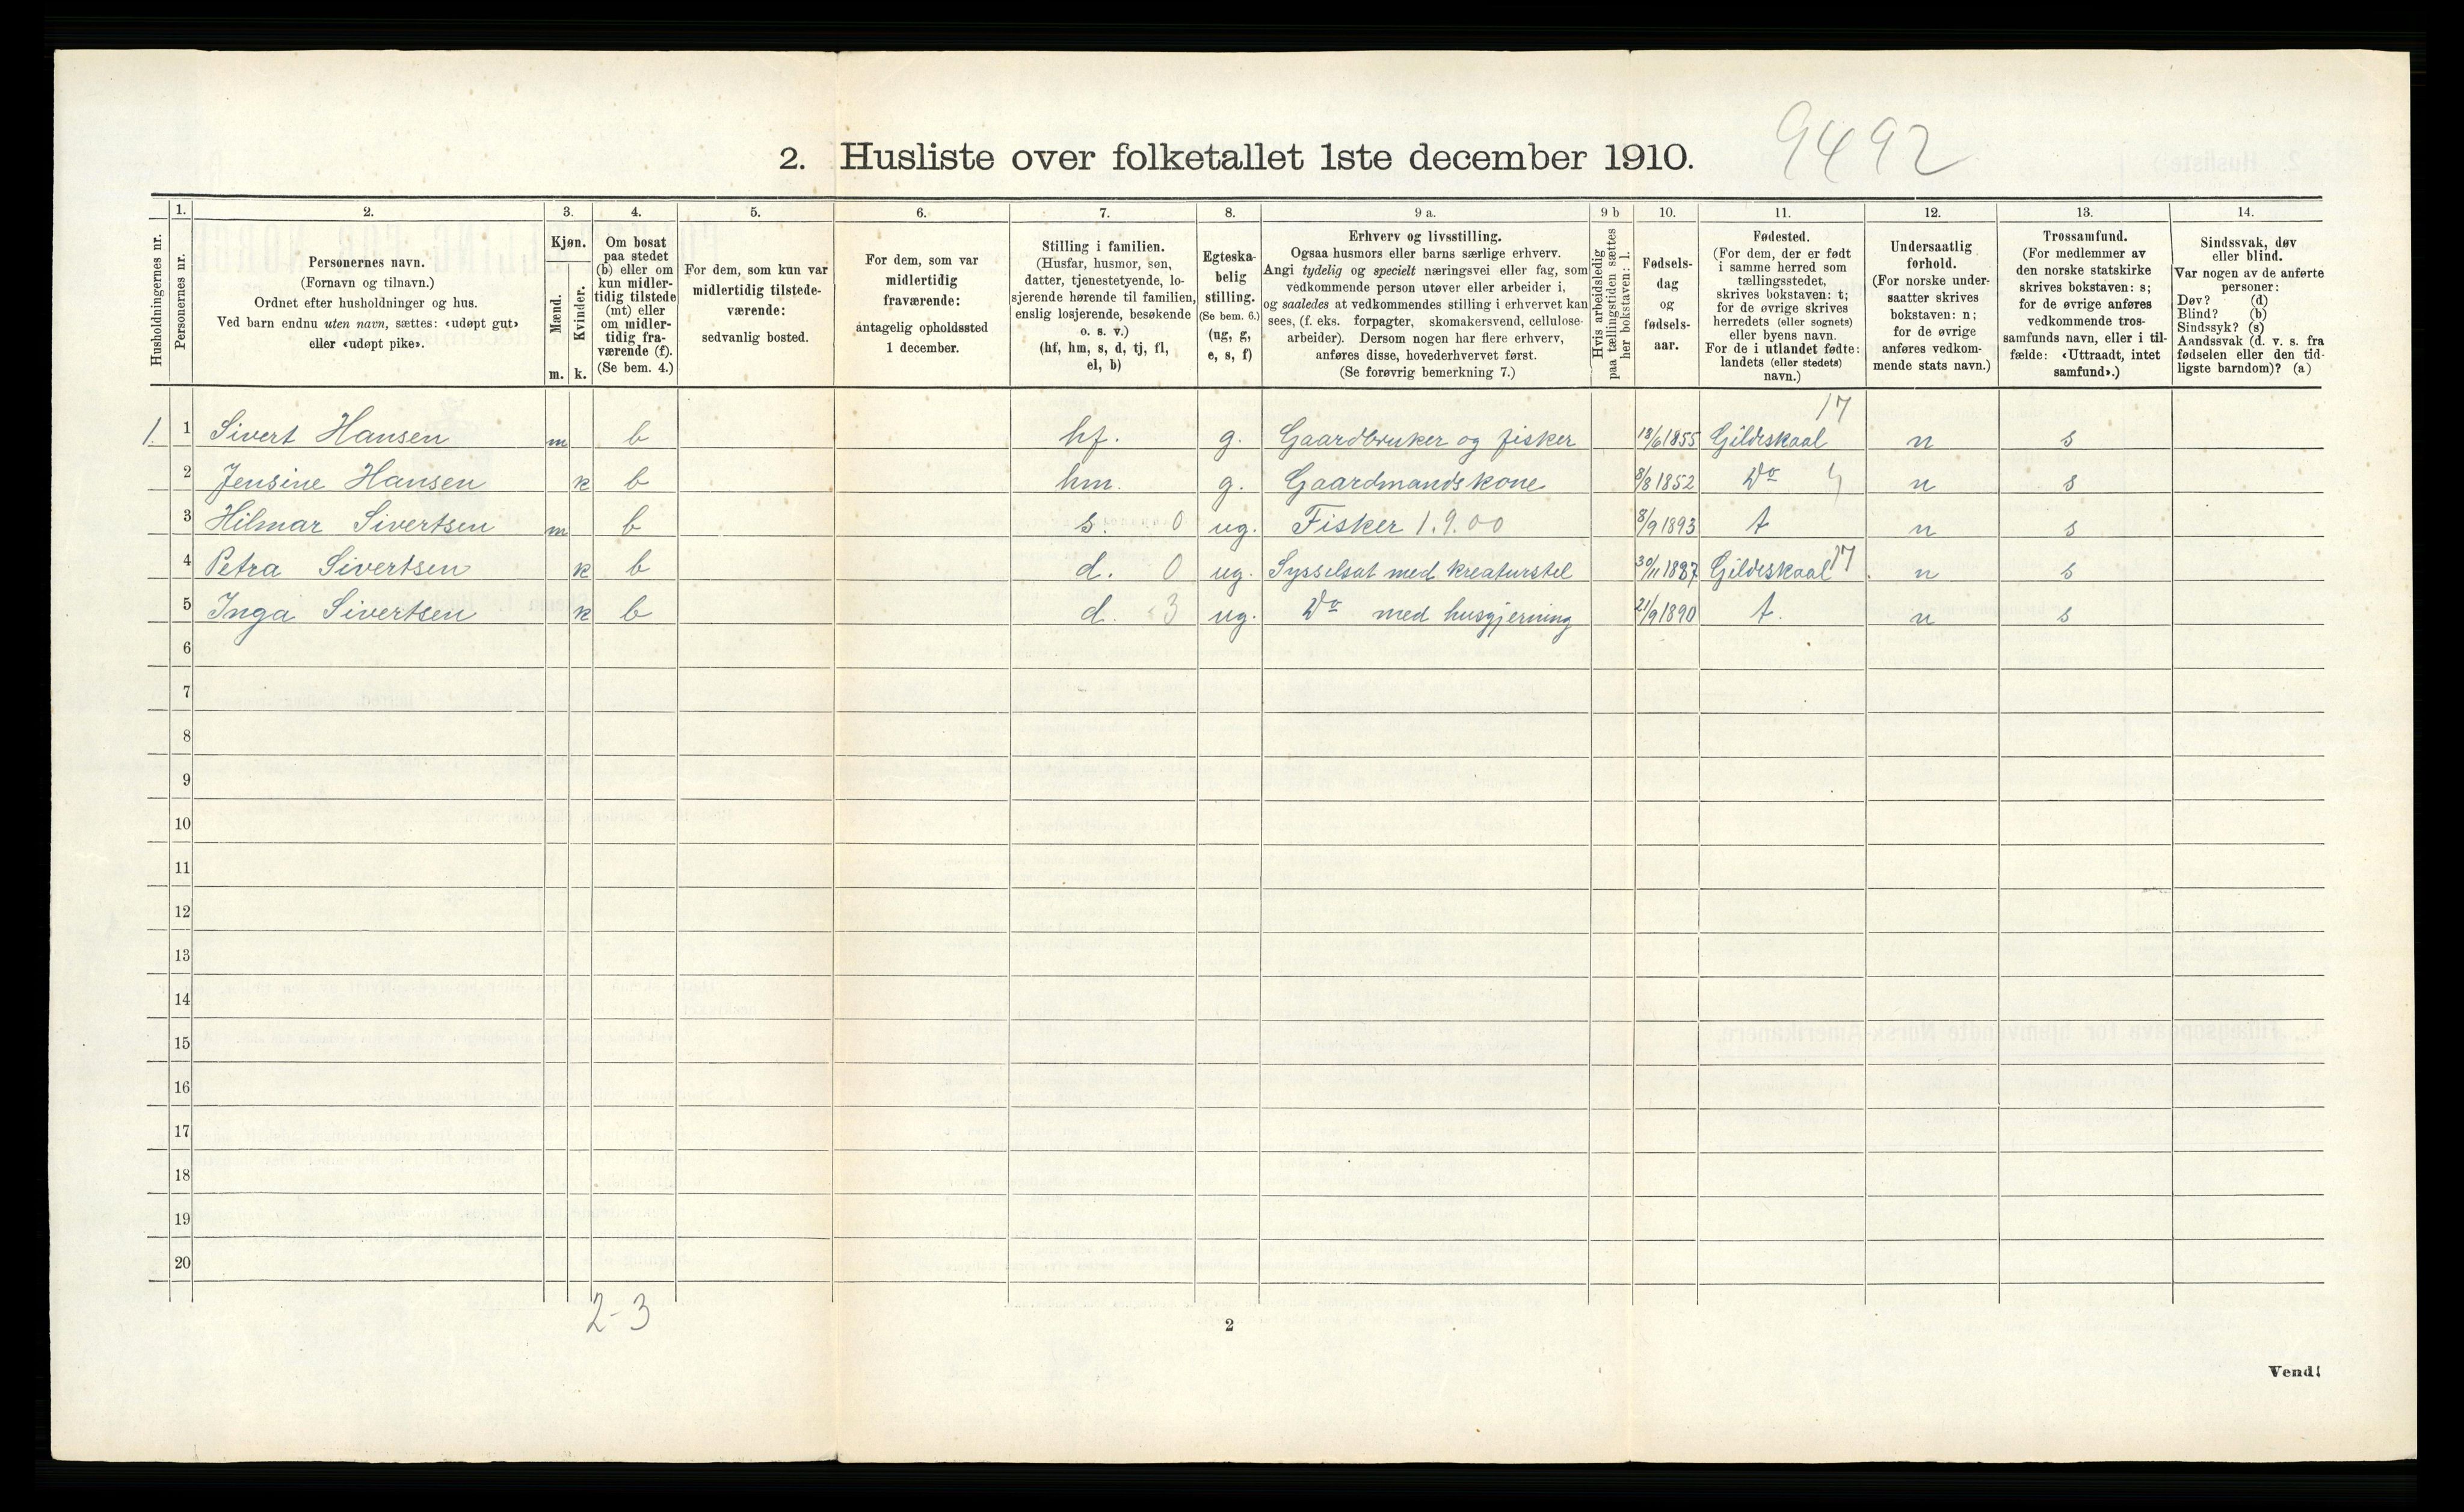 2. Husliste over folketallet 1ste december 1910.
9492
Husholdningernes nr.
1.
Personernes nr.
2.
Personernes navn.
(Fornavn og tilnavn.)
Ordnet efter husholdninger og hus.
Ved barn endnu uten navn, sættes: «udøpt gut»
eller «udøpt pike».
3.
Kjøn.
Mænd.
Kvinder.
m. k.
4.
Om bosat
paa stedet
(b) eller om
kun midler-
tidig tilstede
(mt) eller
om midler-
tidig fra-
værende (f).
(Se bem. 4.)
5.
For dem, som kun var
midlertidig tilstede-
værende:
sedvanlig bosted.
6.
For dem, som var
midlertidig
fraværende:
antagelig opholdssted
1 december.
7.
Stilling i familien.
(Husfar, husmor, søn,
datter, tjenestetyende, lo-
sjerende hørende til familien,
enslig losjerende, besøkende
o. s. v.)
(hf, hm, s, d, tj, fl,
el, b)
8.
Egteska-
belig
stilling.
(Se bem. 6.)
(ug, g,
e, s, f)
9 a.
Erhverv og livsstilling.
Ogsaa husmors eller barns særlige erhverv.
Angi tydelig og specielt næringsvei eller fag, som
vedkommende person utøver eller arbeider i,
og saaledes at vedkommendes stilling i erhvervet kan
sees, (f. eks. forpagter, skomakersvend, cellulose-
arbeider). Dersom nogen har flere erhverv,
anføres disse, hovederhvervet først.
(Se forøvrig bemerkning 7.)
9 b
Hvis arbeidsledig
paa tællingstiden sættes
her bokstaven: l.
10.
Fødsels-
dag
og
fødsels-
aar.
11.
Fødested.
(For dem, der er født
i samme herred som
tællingsstedet,
skrives bokstaven: t;
for de øvrige skrives
herredets (eller sognets)
eller byens navn.
For de i utlandet fødte:
landets (eller stedets)
navn.)
12.
Undersaatlig
forhold.
(For norske under-
saatter skrives
bokstaven: n;
for de øvrige
anføres vedkom-
mende stats navn.)
13.
Trossamfund.
(For medlemmer av
den norske statskirke
skrives bokstaven: s;
for de øvrige anføres
vedkommende tros-
samfunds navn, eller i til-
fælde: «Uttraadt, intet
samfund».)
14.
Sindssvak, døv
eller blind.
Var nogen av de anførte
personer:
Døv? (d)
Blind? (b)
Sindssyk? (s)
Aandssvak (d. v. s. fra
fødselen eller den tid-
ligste barndom)? (a)
17
1. 1 Sivert Hansen m b hf. g. Gaardbruker og fisker 18/6 1855 Gildeskaal n s
2 Jensine Hansen k b hm. g. Gaardmandskone 8/8 1852 Do n s
3 Hilmar Sivertsen m b s. 0 ug. Fisker 1.9.00 8/9 1893 t n s
4 Petra Sivertsen k b d. 0 ug. Sysselsat med kreaturstel 30/11 1887 Gildeskaal 17 n s
5 Inga Sivertsen k b d. 3 ug. Do med husgjerning 21/9 1890 t. n s
6
7
8
9
10
11
12
13
14
15
16
17
18
19
20
2-3
2
Vend!